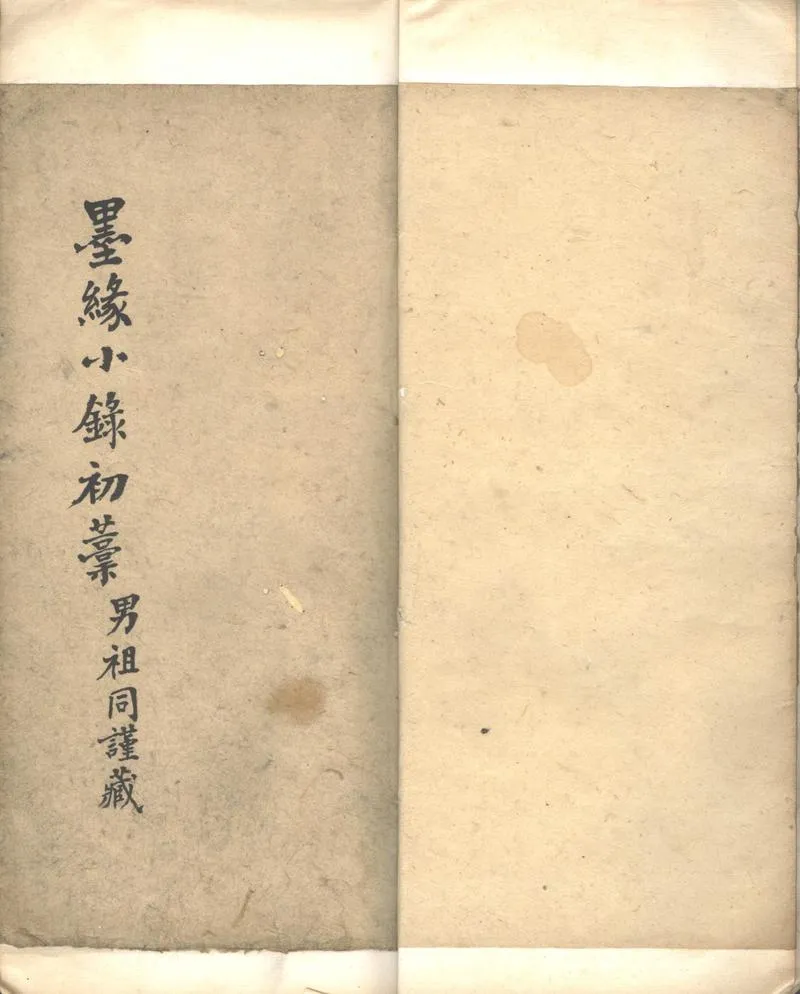 墨緣小錄初藁
男祖同謹藏